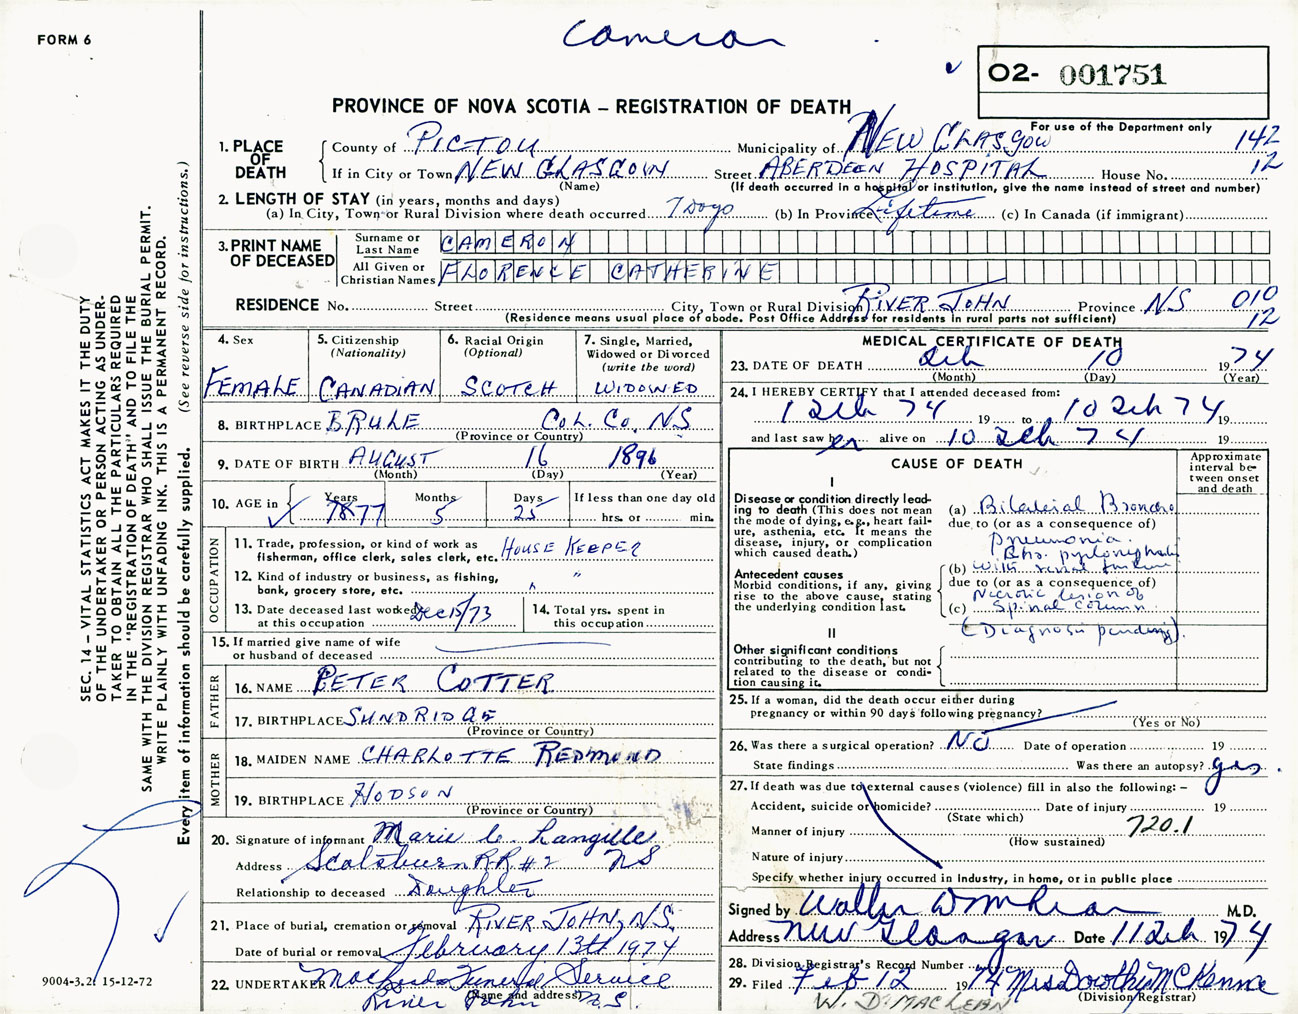 FORM 6
Cameron
O2- 001751
PROVINCE OF NOVA SCOTIA – REGISTRATION OF DEATH
For use of the Department only
1. PLACE OF DEATH County of PICTOU Municipality of NEW GLASGOW 142
If in City or Town NEW GLASGOW Street ABERDEEN HOSPITAL House No. 12
(Name) (If death occurred in a hospital or institution, give the name instead of street and number)
2. LENGTH OF STAY (in years, months and days)
(a) In City, Town or Rural Division where death occurred 7 Days (b) In Province Lifetime (c) In Canada (if immigrant)
3. PRINT NAME OF DECEASED Surname or Last Name CAMERON
All Given or Christian Names FLORENCE CATHERINE
RESIDENCE No. Street City, Town or Rural Division RIVER JOHN Province NS 010
(Residence means usual place of abode. Post Office Address for residents in rural parts not sufficient) 12
4. Sex 5. Citizenship (Nationality) 6. Racial Origin (Optional) 7. Single, Married, Widowed or Divorced (write the word)
FEMALE CANADIAN SCOTCH WIDOWED
8. BIRTHPLACE BRULE COL. CO. NS
(Province or Country)
9. DATE OF BIRTH AUGUST 16 1896
(Month) (Day) (Year)
10. AGE in Years Months Days If less than one day old
78 77 5 25 hrs. or min.
OCCUPATION
11. Trade, profession, or kind of work as fisherman, office clerk, sales clerk, etc. HOUSE KEEPER
12. Kind of industry or business, as fishing, bank, grocery store, etc. " "
13. Date deceased last worked at this occupation Dec 15/73 14. Total yrs. spent in this occupation
15. If married give name of wife or husband of deceased
FATHER
16. NAME PETER COTTER
17. BIRTHPLACE SUNDRIDGE
(Province or Country)
MOTHER
18. MAIDEN NAME CHARLOTTE REDMOND
19. BIRTHPLACE HODSON
(Province or Country)
20. Signature of informant Marie C. Langille
Address Scotsburn RR #2 NS
Relationship to deceased Daughter
21. Place of burial, cremation or removal RIVER JOHN, N.S.
Date of burial or removal February 13th 1974
22. UNDERTAKER Funeral Service
(Name and address) River John N.S.
MEDICAL CERTIFICATE OF DEATH
23. DATE OF DEATH Feb 10 1974
(Month) (Day) (Year)
24. I HEREBY CERTIFY that I attended deceased from:
1 Feb 74 19 to 10 Feb 74 19
and last saw her alive on 10 Feb 74 19
CAUSE OF DEATH
Approximate interval between onset and death
I
Disease or condition directly leading to death (This does not mean the mode of dying, e.g., heart failure, asthenia, etc. It means the disease, injury, or complication which caused death.)
(a) Bilateral Broncho
due to (or as a consequence of)
pneumonia.
Antecedent causes
Morbid conditions, if any, giving rise to the above cause, stating the underlying condition last.
(b) with renal failure
due to (or as a consequence of)
Necrotic lesion of
(c) Spinal Column
(Diagnosis pending).
II
Other significant conditions contributing to the death, but not related to the disease or condition causing it.
25. If a woman, did the death occur either during pregnancy or within 90 days following pregnancy?
(Yes or No)
26. Was there a surgical operation? NO Date of operation 19
State findings Was there an autopsy? yes.
27. If death was due to external causes (violence) fill in also the following: –
Accident, suicide or homicide? Date of injury 19
(State which)
Manner of injury 720.1
(How sustained)
Nature of injury
Specify whether injury occurred in Industry, in home, or in public place
Signed by M.D.
Address New Glasgow Date 11 Feb 1974
28. Division Registrar's Record Number
29. Filed Feb 12 1974 Mrs Dorothy McKenna
(Division Registrar)
W. D. MACLEAN
SEC. 14 – VITAL STATISTICS ACT MAKES IT THE DUTY
OF THE UNDERTAKER OR PERSON ACTING AS UNDERTAKER TO OBTAIN ALL THE PARTICULARS REQUIRED
IN THE "REGISTRATION OF DEATH" AND TO FILE THE
SAME WITH THE DIVISION REGISTRAR WHO SHALL ISSUE THE BURIAL PERMIT.
WRITE PLAINLY WITH UNFADING INK. THIS IS A PERMANENT RECORD.
Every item of information should be carefully supplied. (See reverse side for instructions.)
9004-3.2: 15-12-72